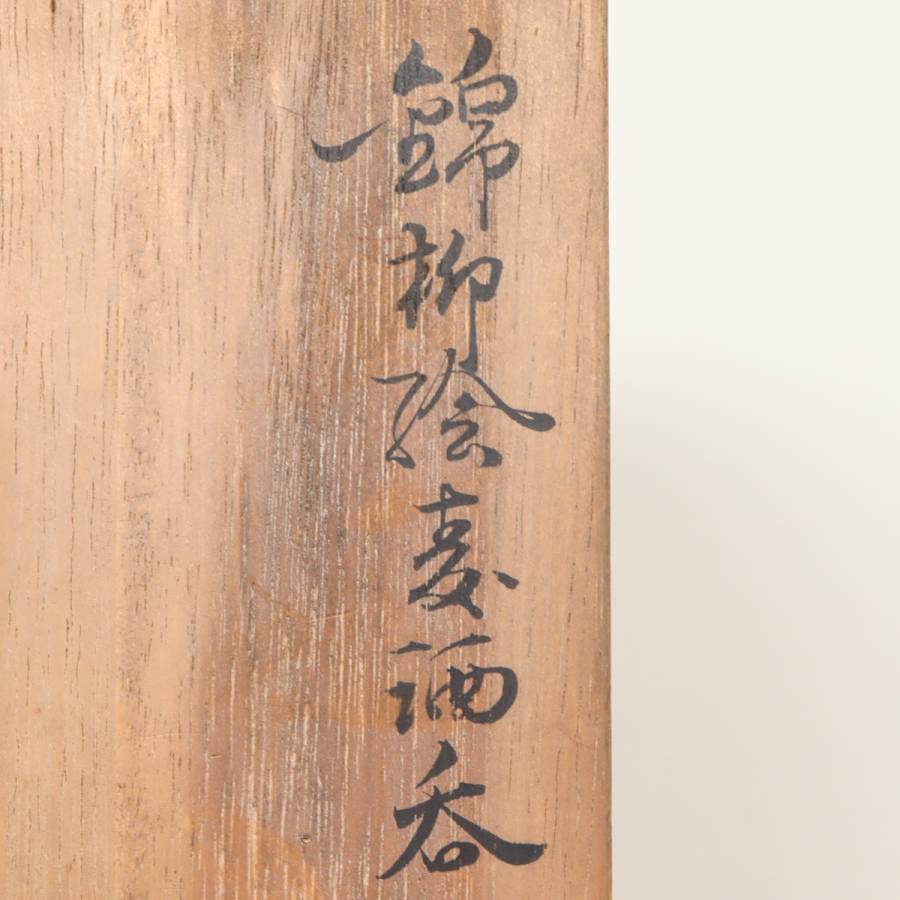 錦柳絵麦酒呑